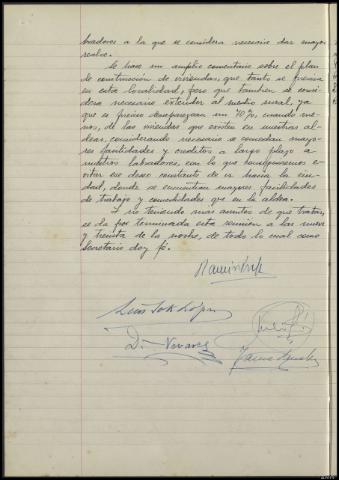 bradores a la que se considera necesario dar mayor
realce.
Se hace un amplio comentario sobre el plan
de construcción de viviendas, que tanto se precisa
en esta localidad, pero que tambien se consi
dera necesario extender al medio rural, ya
que es preciso desaparezcan un 70%, cuando me-
nos, de las viviendas que existen en nuestras al-
deas, considerando necesario se concedan mayo-
res facilidades y creditos a largo plazo a
nuestros labradores, con lo que conseguiremos e-
vitar ese deseo constante de ir hacia la ciu-
dad, donde se encuentran mayores facilidades
de trabajo y comodidades que en la aldea.
Y no teniendo mas asuntos de que tratar,
se da por terminada esta reunión a las nueve
y treinta de la noche, de todo lo cual como
Secretario doy fé.
Luis López
D. Novares
Jaime